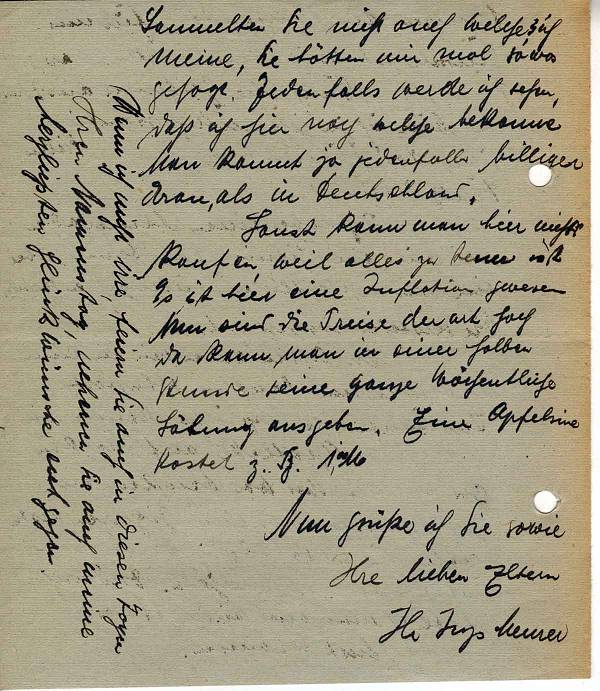 Sammelten Sie nicht auch welche? Ich
meine, Sie hätten mir mal sowas
gesagt. Jedenfalls werde ich sehen,
daß ich hier noch welche bekomme
Man kommt ja jedenfalls billiger
dran, als in Deutschland.
Sonst kann man hier nichts
kaufen, weil alles zu teuer ist
Es ist hier eine Inflation gewesen
Nun sind die Preise derart hoch
da kann man in einer halben
Stunde seine ganze wöchentliche
Löhnung ausgeben. Eine Apfelsine
kostet z. B. 1,
Nun grüße ich Sie sowie
Ihre lieben Eltern
Ihr Meurer
Wenn ich nicht irre, feiern Sie auch in diesen Tagen
Ihren Namenstag, nehmen Sie auch meine
herzlichsten Glückwünsche entgegen.